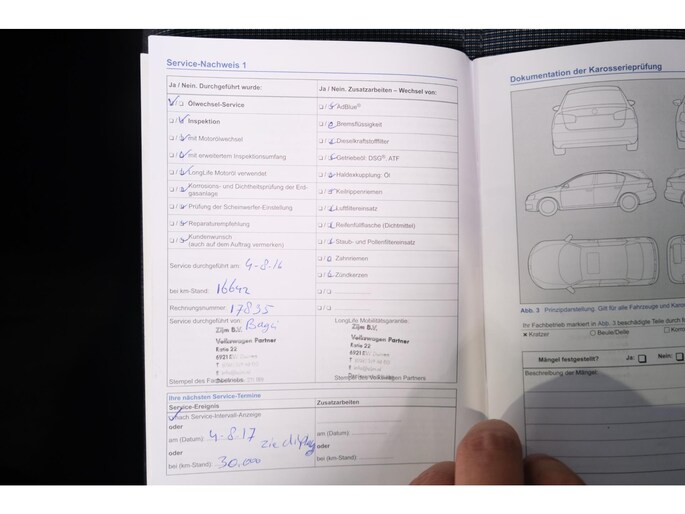 Service-Nachweis 1
Ja / Nein. Durchgeführt wurde:
Ölwechsel-Service
Inspektion
mit Motorölwechsel
mit erweitertem Inspektionsumfang
LongLife Motoröl verwendet
Korrosions- und Dichtheitsprüfung der Erd-
gasanlage
Prüfung der Scheinwerfer-Einstellung
Reparaturempfehlung
Kundenwunsch
(auch auf dem Auftrag vermerken)
Service durchgeführt am: 4-8-16
bei km-Stand: 16642
Rechnungsnummer: 17895
Service durchgeführt von:
Zijm B.V.
Volkswagen Partner
Ratie 22
Stempel des
Ja / Nein. Zusatzarbeiten – Wechsel von:
AdBlue®
Bremsflüssigkeit
Dieselkraftstofffilter
Getriebeöl: DSG®, ATF
Haldexkupplung: Öl
Keilrippenriemen
Luftfiltereinsatz
Reifenfüllflasche (Dichtmittel)
Staub- und Pollenfiltereinsatz
Zahnriemen
Zündkerzen
LongLife Mobilitätsgarantie:
Zijm B.V.
Volkswagen Partner
Ratie 22
Stempel des Volkswagen Partners
Ihre nächsten Service-Termine
Service-Ereignis
nach Service-Intervall-Anzeige
oder
am (Datum): 4-8.17
oder
bei (km-Stand): 30.000
zie display
Zusatzarbeiten
am (Datum):
oder
bei (km-Stand):
Dokumentation der Karosserieprüfung
Abb. 3 Prinzipdarstellung. Gilt für alle Fahrzeuge und
Ihr Fachbetrieb markiert in Abb. 3 beschädigte Teile durch
Kratzer Beule/Delle
Mängel festgestellt? Ja: Nein:
Beschreibung der Mängel: